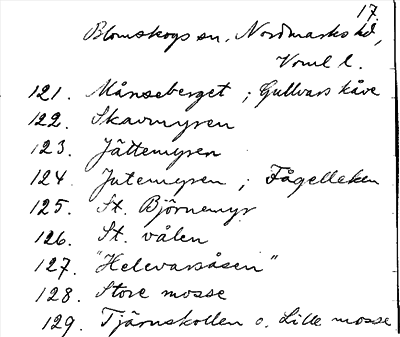 17.
Blomskogs sn, Nordmarks hd,
Verml l.
121. Månseberget ; Gullvars kåve
122. Skavmyren
123. Jättemyren
124. Jutemyren ; Fågelleken
125. St. Björnemyr
126. St. vålen
127. "Helevarsåsen"
128. Store mosse
129. Tjärnskollen o. Lille mosse